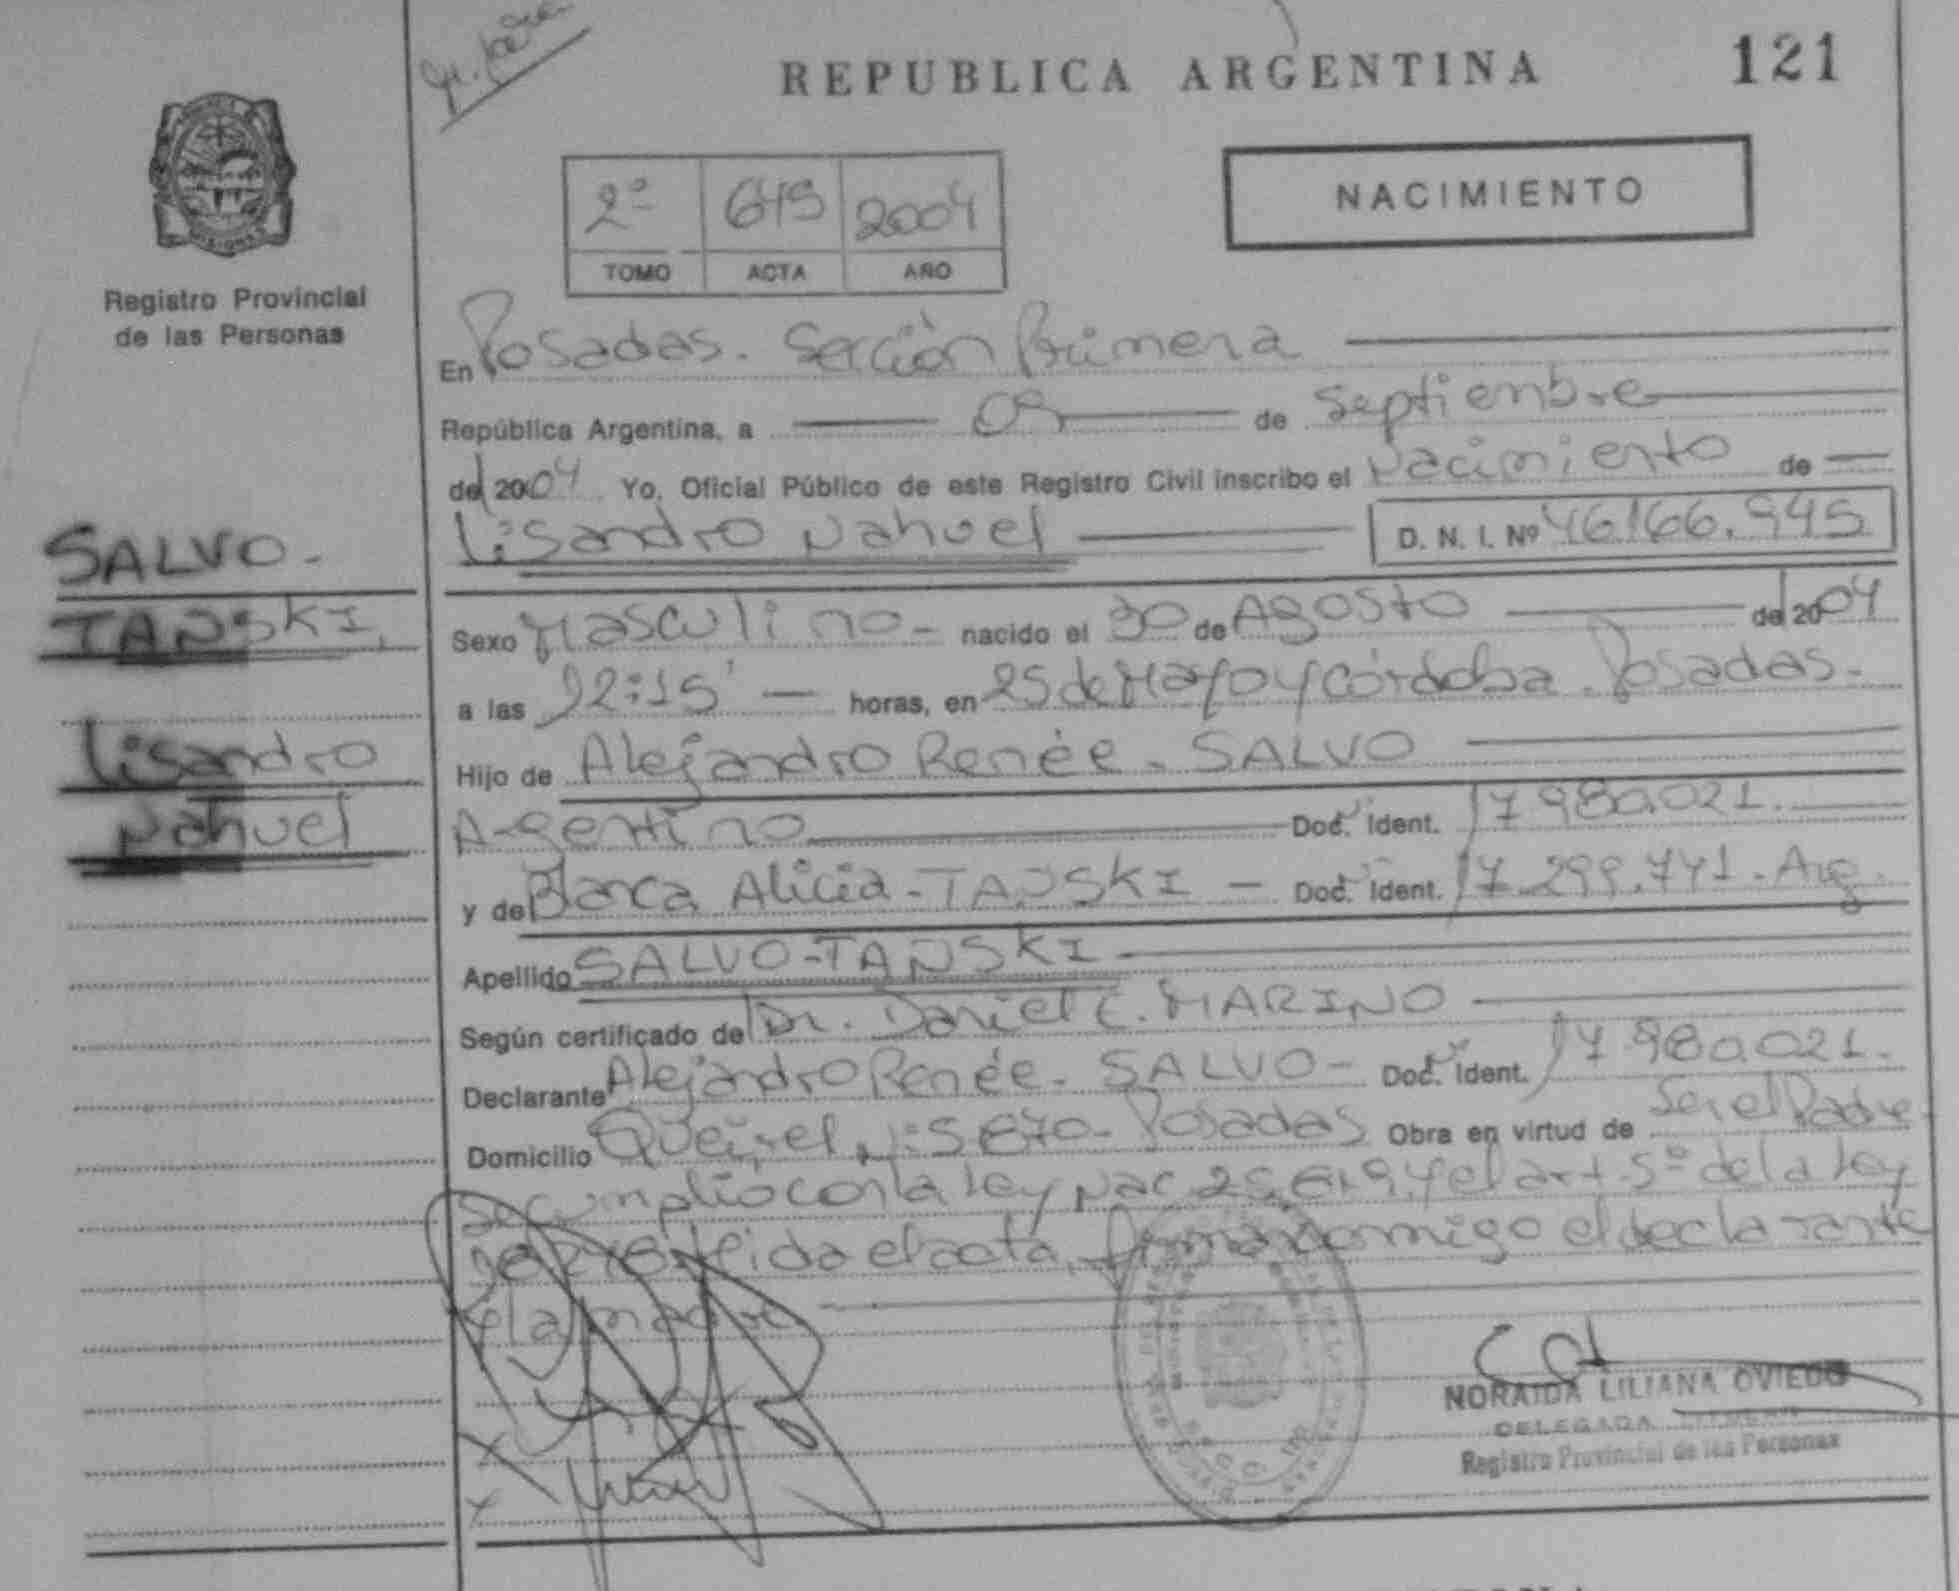 REPUBLICA ARGENTINA
121
NACIMIENTO
2º 2004
TOMO ACTA AÑO
Registro Provincial
de las Personas
En Posadas. Sección Primera
República Argentina, a de Septiembre
del 2004 Yo, Oficial Público de este Registro Civil inscribo el Nacimiento de
Lisandro Nahuel
D. N. I. Nº 46.166.945
SALVO-
TANSKI,
Lisandro
Nahuel
Sexo Masculino - nacido el 30 de Agosto del 2004
a las 12:15' horas, en 25 de Mayo y Córdoba. Posadas.-
Hijo de Alejandro Renée - SALVO
Argentino Doc. Ident. 17.980.021.
y de Blanca Alicia - TANSKI - Doc. Ident. 17.299.741. Arg.
Apellido SALVO-TANSKI
Según certificado de Dr. Daniel C. MARINO
Declarante Alejandro Renée - SALVO - Doc. Ident. 17.980.021.
Domicilio Posadas Obra en virtud de Ser el Padre
Se cumplió con la Ley Nac 25. y el art. 5º de la Ley
leida el acta, firman conmigo el declarante
y la madre
NORAIDA LILIANA OVIEDO
DELEGADA
Registro Provincial de las Personas